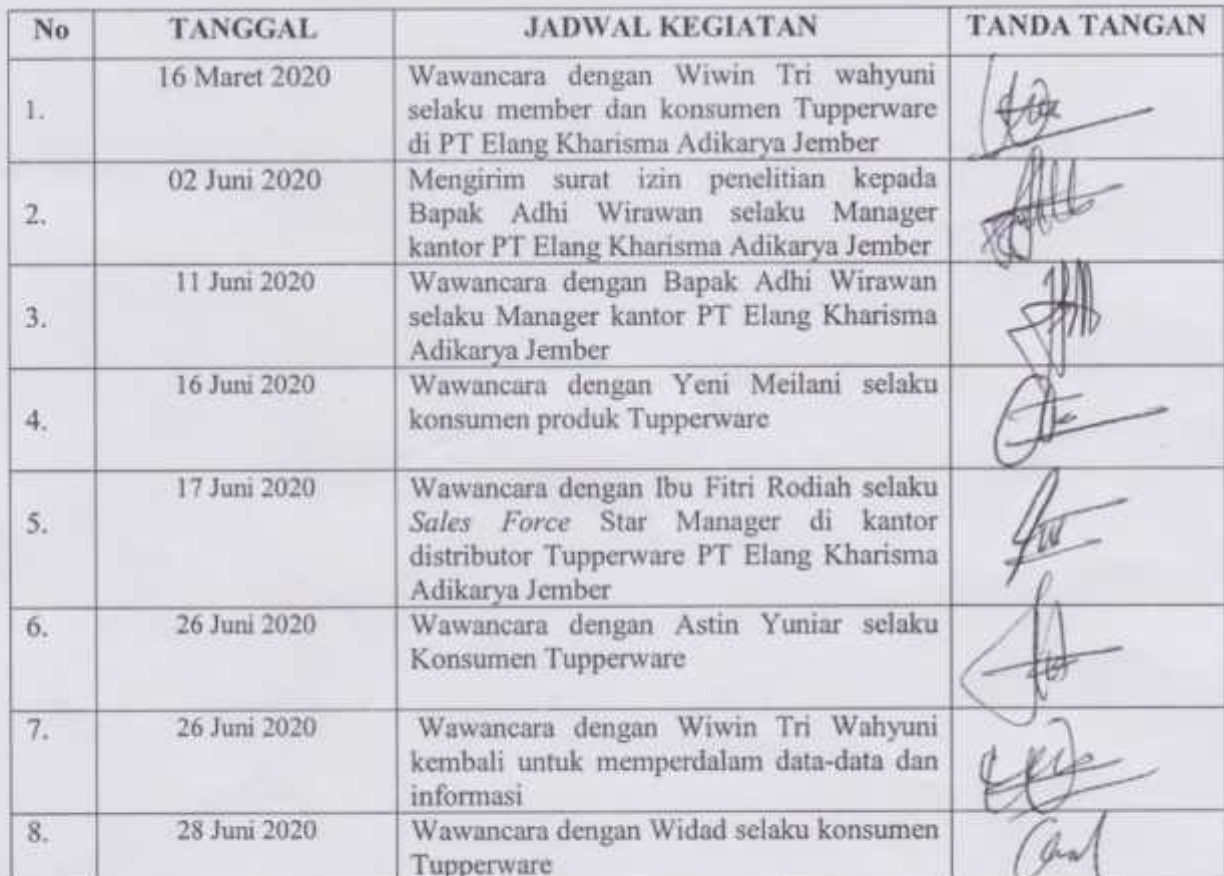 No TANGGAL JADWAL KEGIATAN TANDA TANGAN
1. 16 Maret 2020 Wawancara dengan Wiwin Tri wahyuni
selaku member dan konsumen Tupperware
di PT Elang Kharisma Adikarya Jember
2. 02 Juni 2020 Mengirim surat izin penelitian kepada
Bapak Adhi Wirawan selaku Manager
kantor PT Elang Kharisma Adikarya Jember
3. 11 Juni 2020 Wawancara dengan Bapak Adhi Wirawan
selaku Manager kantor PT Elang Kharisma
Adikarya Jember
4. 16 Juni 2020 Wawancara dengan Yeni Meilani selaku
konsumen produk Tupperware
5. 17 Juni 2020 Wawancara dengan Ibu Fitri Rodiah selaku
Sales Force Star Manager di kantor
distributor Tupperware PT Elang Kharisma
Adikarya Jember
6. 26 Juni 2020 Wawancara dengan Astin Yuniar selaku
Konsumen Tupperware
7. 26 Juni 2020 Wawancara dengan Wiwin Tri Wahyuni
kembali untuk memperdalam data-data dan
informasi
8. 28 Juni 2020 Wawancara dengan Widad selaku konsumen
Tupperware